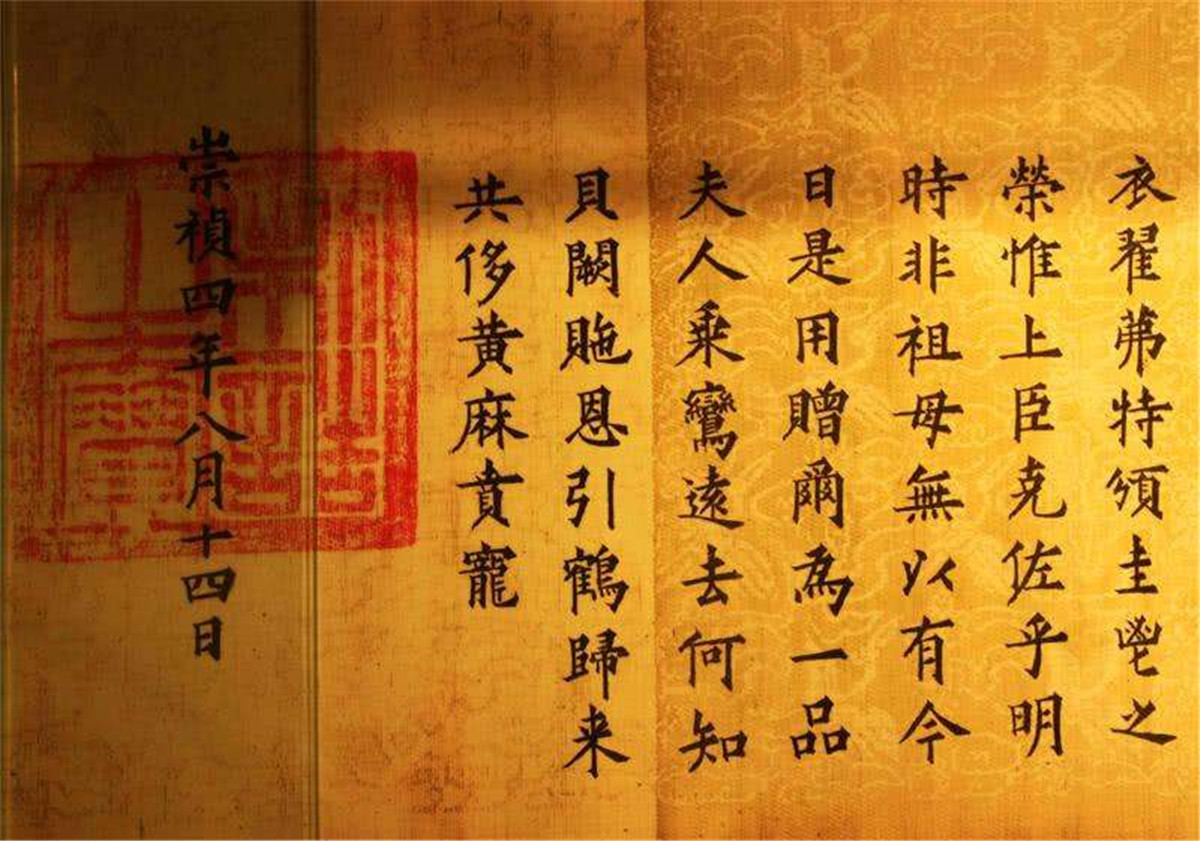 衣翟茀特頒圭鬯之
榮惟上臣克佐乎明
時非祖母無以有今
日是用贈爾為一品
夫人乘鸞遠去何知
貝闕貤恩引鶴歸来
共侈黄麻賁寵
崇禎四年八月十四日